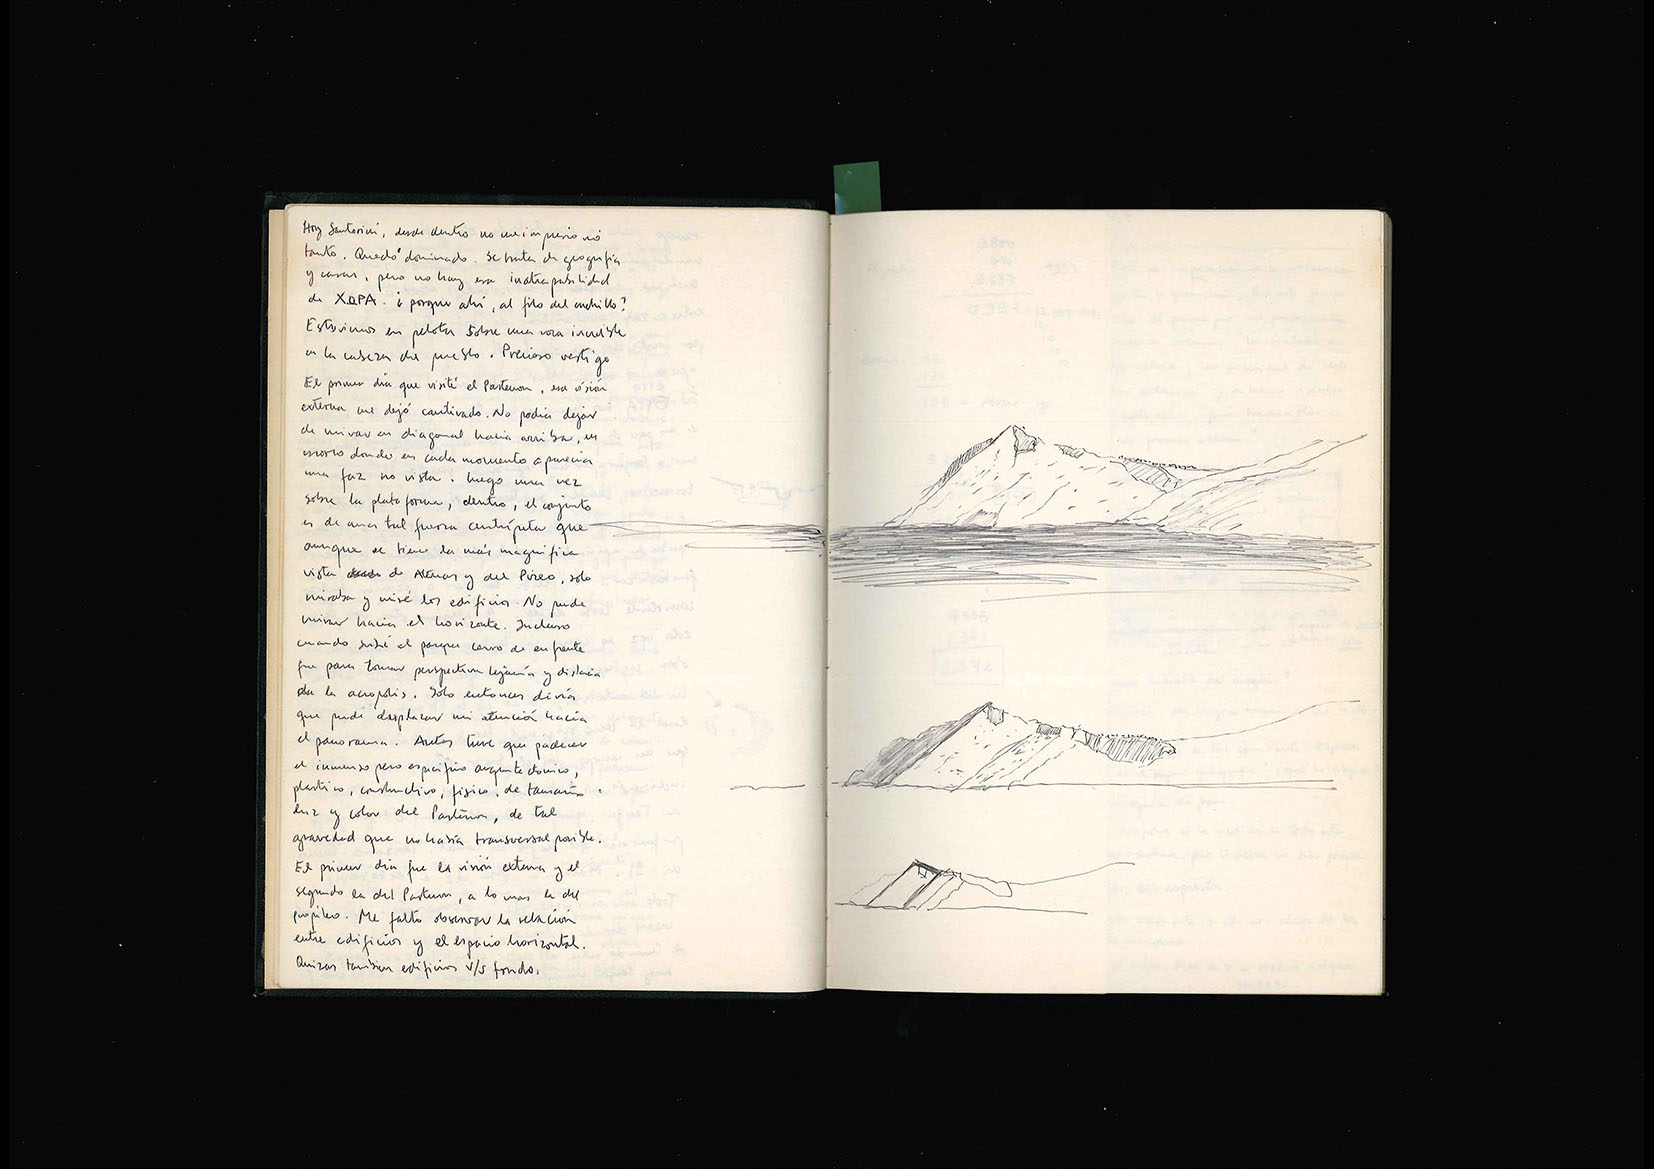 Hoy Santorini, desde dentro no me impresionó
tanto. Quedó dominado. Se trata de geografía
y casas, pero no hay esa inatrapabilidad
de XΩPA. ¿porque ahí, al filo del cuchillo?
Estuvimos en pelotas sobre una roca increíble
en la cabeza del pueblo. Precioso vertigo
El primer día que visité el Partenon, esa visión
externa me dejó cautivado. No podía dejar
de mirar en diagonal hacia arriba, en
donde en cada momento aparecía
una faz no vista. Luego una vez
sobre la plataforma, dentro, el conjunto
es de una tal fuerza centrípeta que
aunque se tiene la más magnífica
vista de Atenas y del Pireo, solo
miraba y miré los edificios. No pude
mirar hacia el horizonte. Incluso
cuando subí el parque cerro de enfrente
fue para tomar perspectiva lejanía y distancia
de la acropolis. Solo entonces diría
que pude desplazar mi atención hacia
el panorama. Antes tuve que padecer
el inmenso peso especifico arquitectonico,
plastico, constructivo, fisico, de tamaño
luz y color del Partenon, de tal
gravedad que no había transversal posible.
El primer día fue la visión externa y el
segundo la del Partenon, a lo mas la del
propileo. Me falto observar la relación
entre edificios y el espacio horizontal.
Quizas tambien edificios v/s fondo.